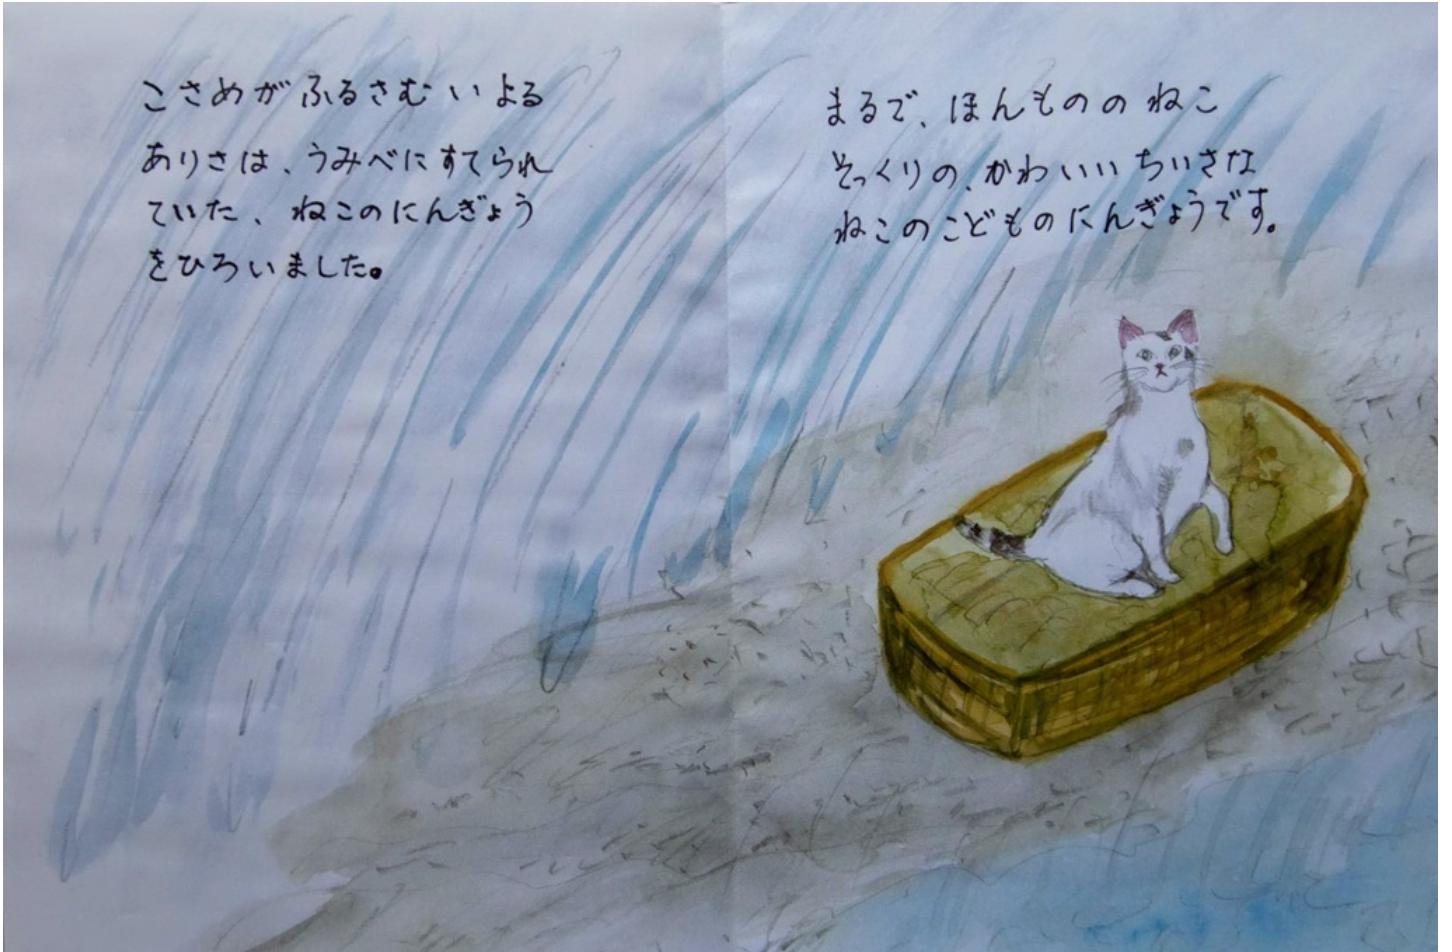 こさめがふるさむいよる
ありさは、うみべにすてられ
ていた、ねこのにんぎょう
をひろいました。
まるで、ほんもののねこ
そっくりの、かわいいちいさな
ねこのこどものにんぎょうです。